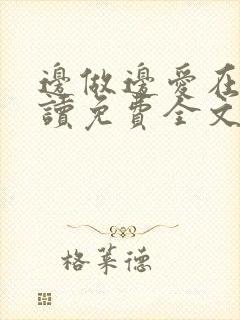 邊做邊愛在
讀免費全文
格萊德